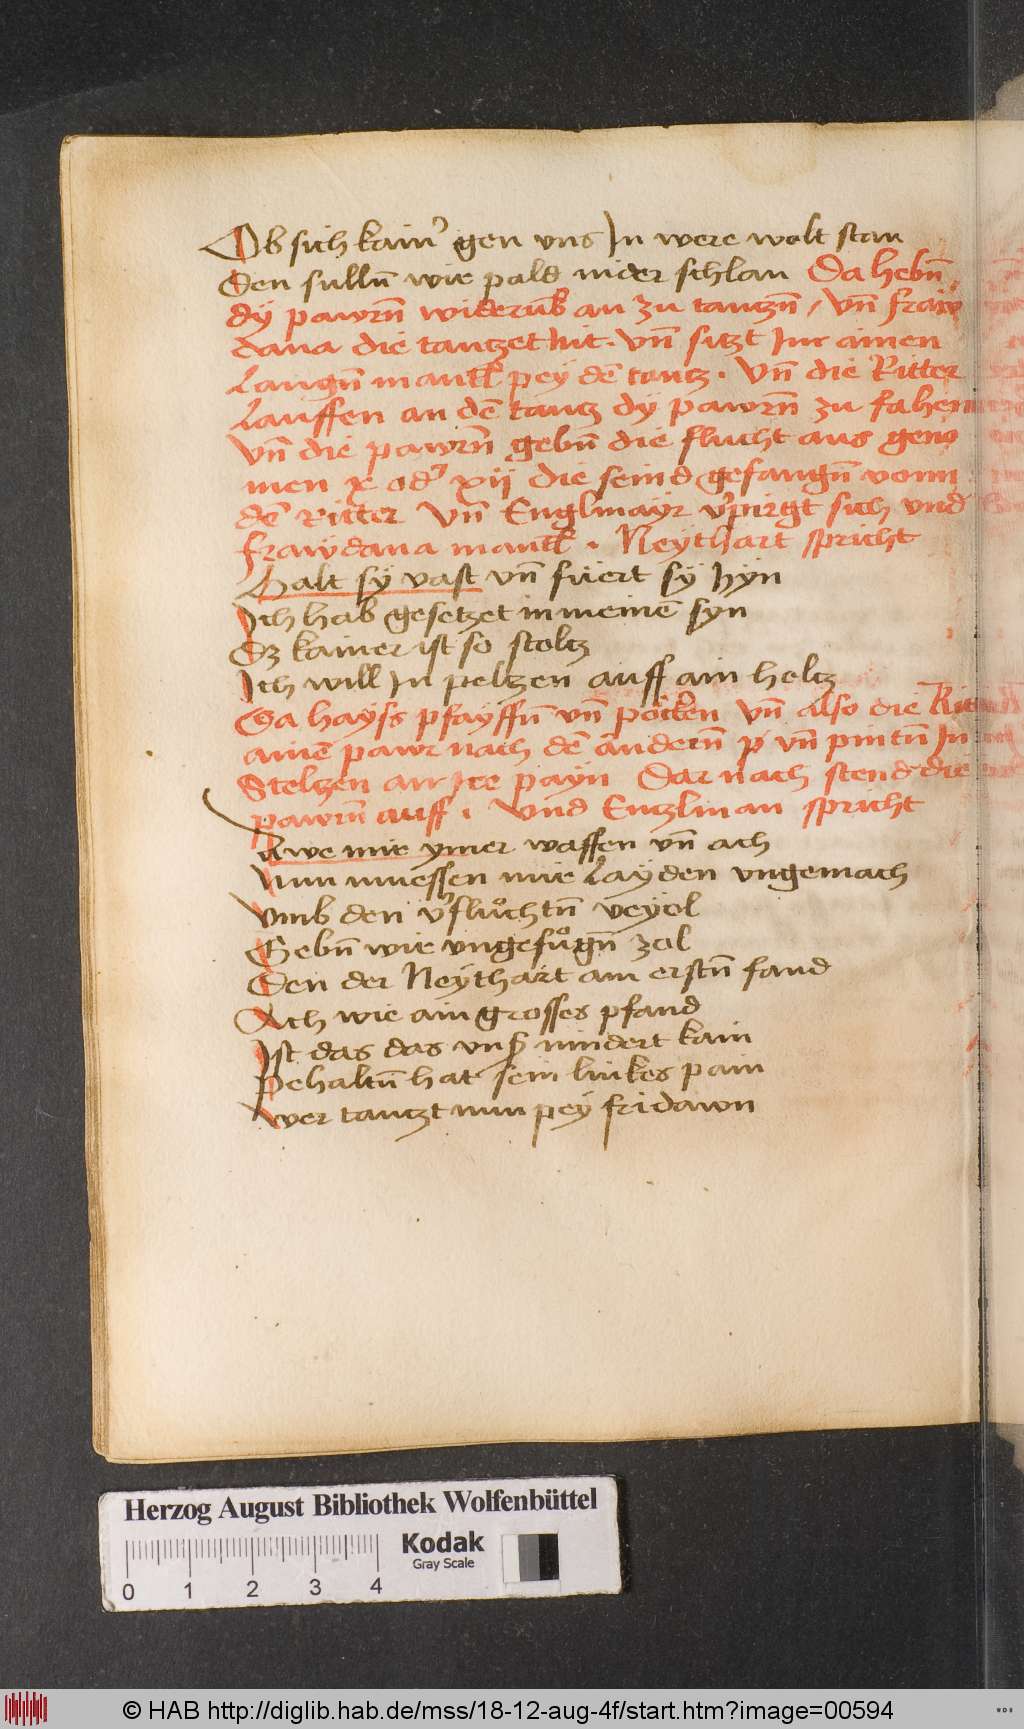 Ob sich kainr gen vns In were wolt stan
Den sullñ wir pald nider schlan Da hebñ
dÿ pawrñ widerũb an zu tantzñ / Vñ fraw
dana die tantzet nit. Vñ sitzt Inn ainen
Langñ mantl pey dẽ tantz. Vñ die Ritter
Lauffen an dẽ tantz dÿ pawrñ zu fahen
Vñ die pawrñ gebñ die flucht aus geno
men x odr xij die seind gefangñ vonn
dẽ Ritter Vñ Englmayr vrpirgt sich vnd
frawdana mantl. Neythart spricht
Halt sÿ vast vñ füert sÿ hÿn
Ich hab gesetzet in meinẽ syn
Ez kainer ist so stoltz
Ich will In peltzen auff ain holtz
Sa hayss pfayffñ vñ pöcken Vñ also die
ainẽ pawr nach dẽ andern̄ vñ pintñ In
Steltzen an Ire payn Dar nach stend die
pawrñ auff. Vnd Entzlman spricht
Awe mir ymer waffen vñ ach
Nun muessen mir Layden vngemach
Vmb den vrfluͦchtñ veyol
Gebñ wir vngefuͦgñ zol
Den der Neythart am erstñ fand
Ach wie ain grosses pfand
Ist das das vnser nindert kain
Pehaltñ hat sein linkes pain
Wer tantzt nun pey fridawn
Herzog August Bibliothek Wolfenbüttel
Kodak
Gray Scale
0 1 2 3 4
© HAB http://diglib.hab.de/mss/18-12-aug-4f/start.htm?image=00594